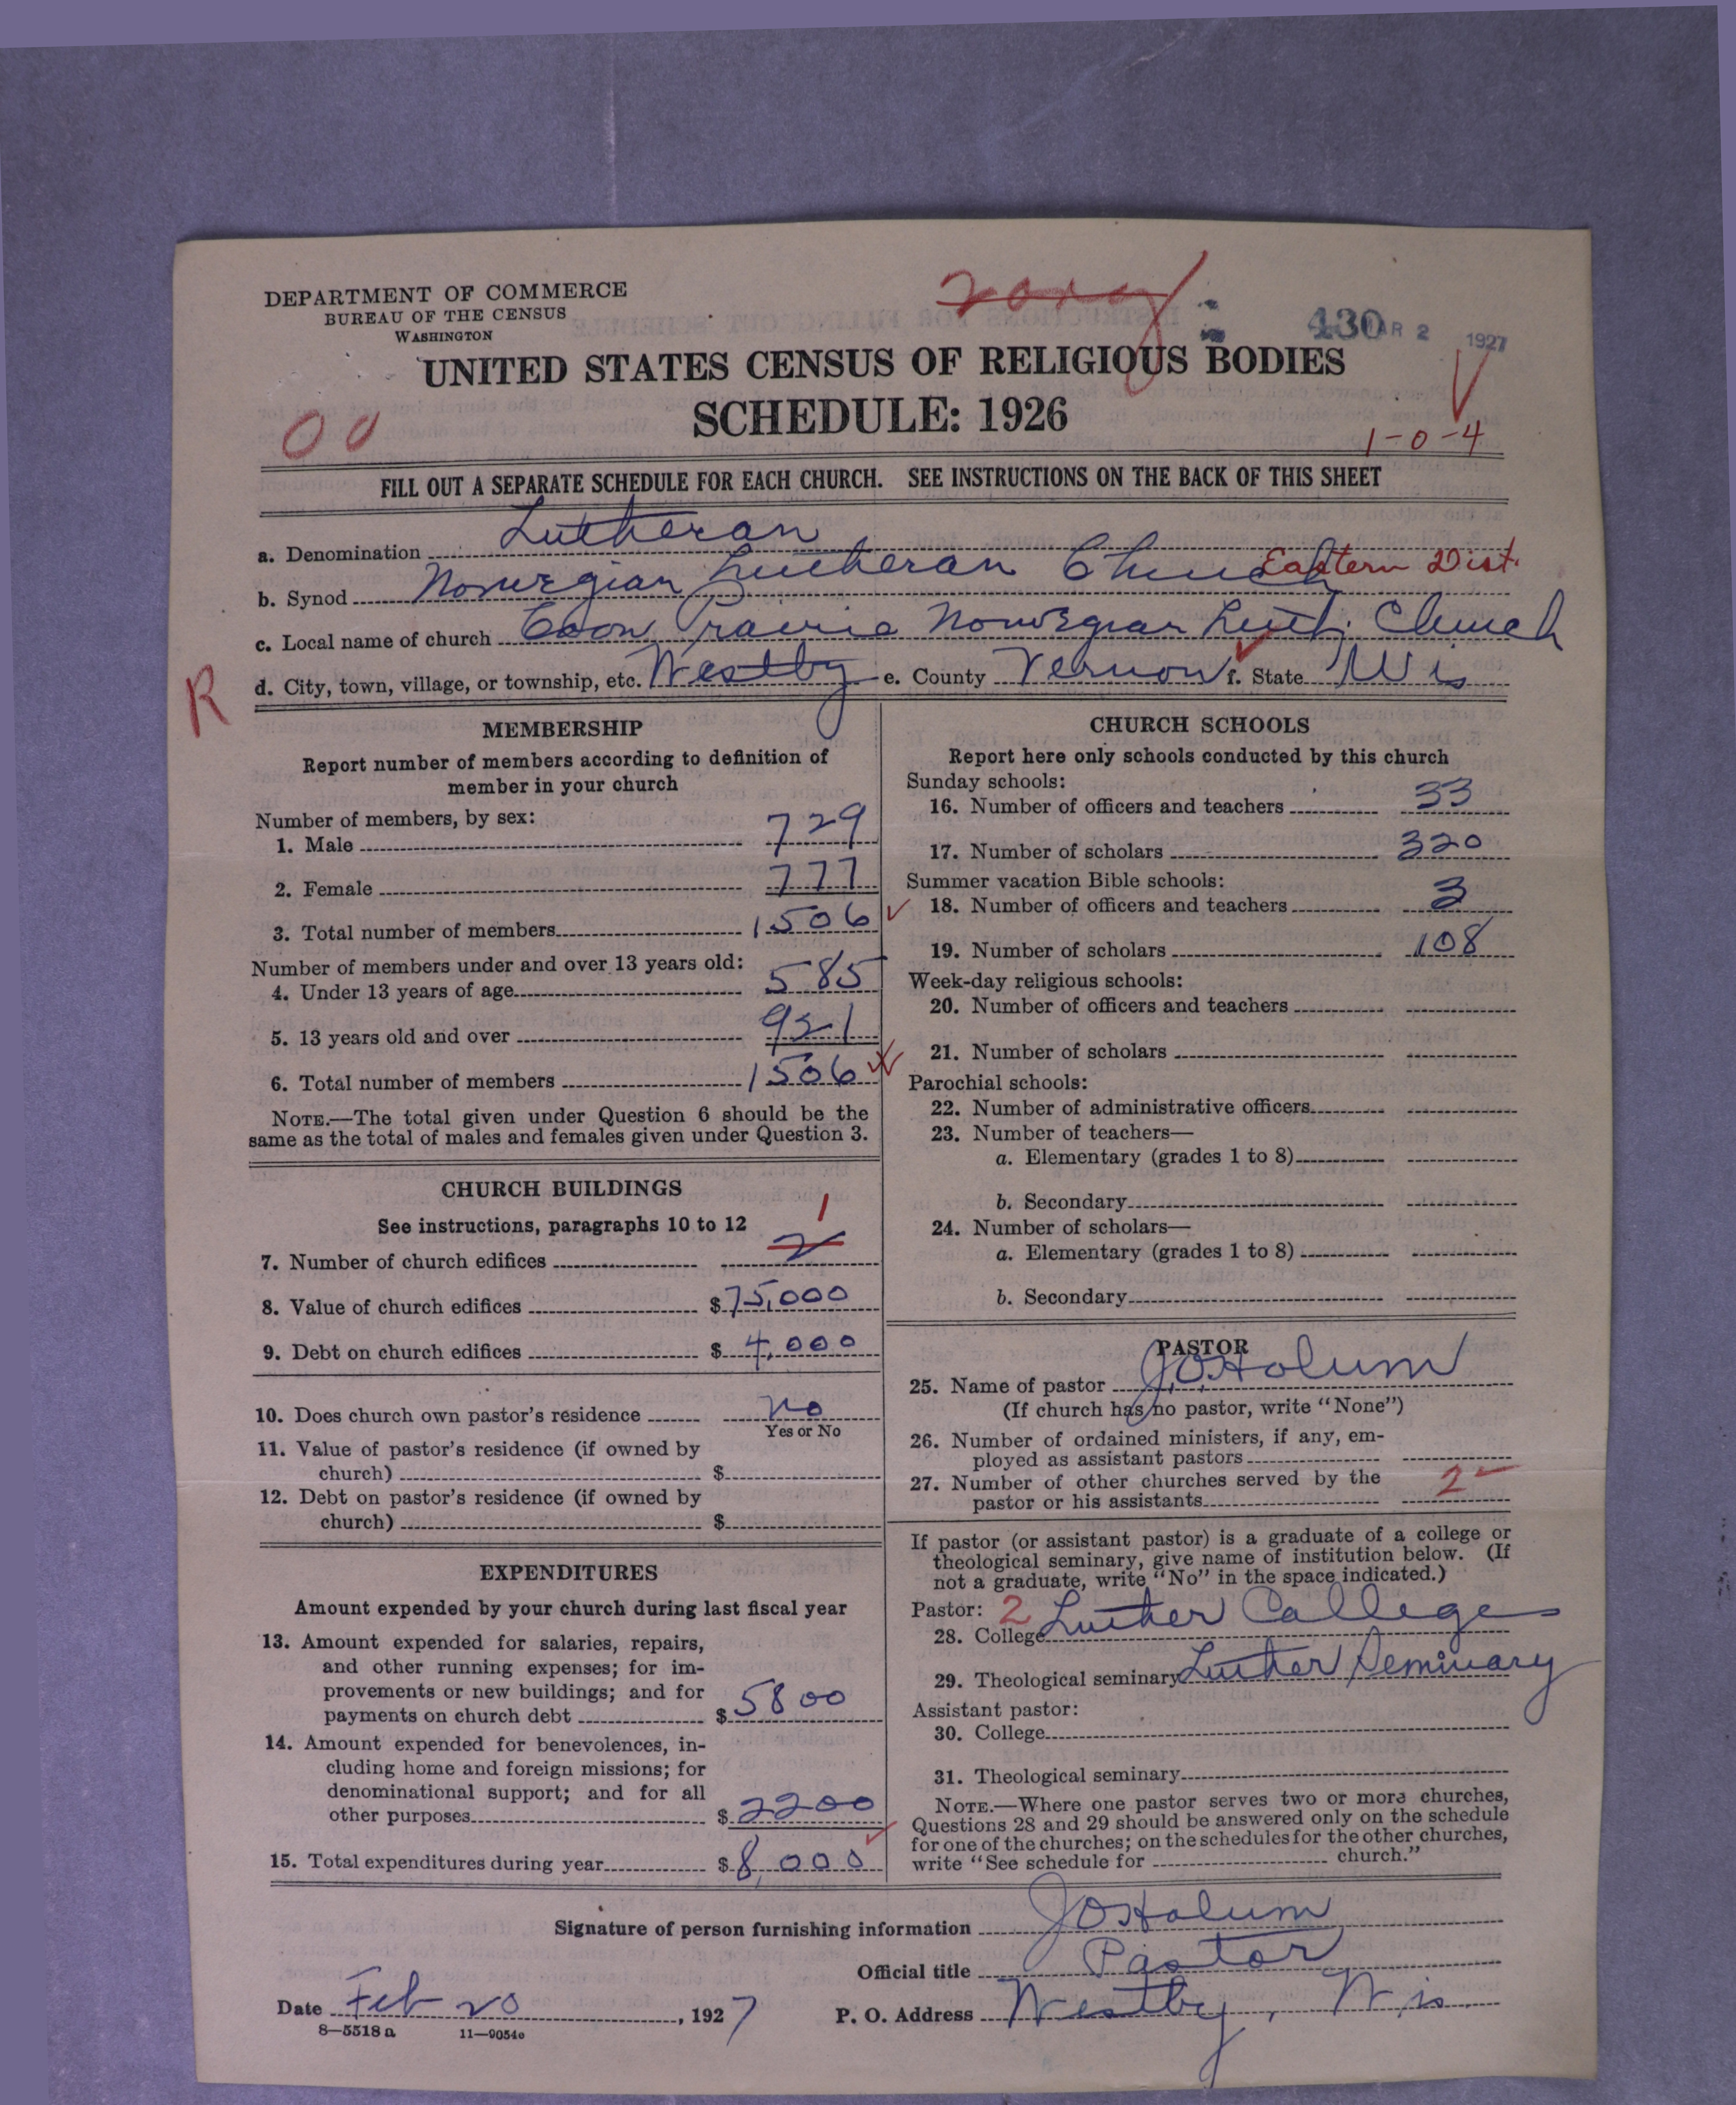 DEPARTMENT OF COMMERCE
BUREAU OF THE CENSUS
WASHINGTON
430
MAR 2 1927
UNITED STATES CENSUS OF RELIGIOUS BODIES
SCHEDULE: 1926
00
1-0-4
FILL OUT A SEPARATE SCHEDULE FOR EACH CHURCH. SEE INSTRUCTIONS ON THE BACK OF THIS SHEET
a. Denomination Lutheran
b. Synod Norwegian Lutheran Church Eastern Dist.
c. Local name of church Coon Prairie Norwegian Luth. Church
R
d. City, town, village, or township, etc. Westby e. County Vernon f. State Wis
MEMBERSHIP
Report number of members according to definition of
member in your church
Number of members, by sex:
1. Male 729
2. Female 777
3. Total number of members 1506
Number of members under and over 13 years old:
4. Under 13 years of age 585
5. 13 years old and over 921
6. Total number of members 1506
NOTE.—The total given under Question 6 should be the
same as the total of males and females given under Question 3.
CHURCH BUILDINGS
See instructions, paragraphs 10 to 12
1
7. Number of church edifices 2
8. Value of church edifices $75,000
9. Debt on church edifices $4,000
10. Does church own pastor's residence no
Yes or No
11. Value of pastor's residence (if owned by
church) $
12. Debt on pastor's residence (if owned by
church) $
EXPENDITURES
Amount expended by your church during last fiscal year
13. Amount expended for salaries, repairs,
and other running expenses; for im-
provements or new buildings; and for
payments on church debt $5800
14. Amount expended for benevolences, in-
cluding home and foreign missions; for
denominational support; and for all
other purposes $2200
15. Total expenditures during year $8,000
CHURCH SCHOOLS
Report here only schools conducted by this church
Sunday schools:
16. Number of officers and teachers 33
17. Number of scholars 320
Summer vacation Bible schools:
18. Number of officers and teachers 3
19. Number of scholars 108
Week-day religious schools:
20. Number of officers and teachers
21. Number of scholars
Parochial schools:
22. Number of administrative officers
23. Number of teachers—
a. Elementary (grades 1 to 8)
b. Secondary
24. Number of scholars—
a. Elementary (grades 1 to 8)
b. Secondary
PASTOR
25. Name of pastor J.O. Holum
(If church has no pastor, write "None")
26. Number of ordained ministers, if any, em-
ployed as assistant pastors
27. Number of other churches served by the
pastor or his assistants 2
If pastor (or assistant pastor) is a graduate of a college or
theological seminary, give name of institution below. (If
not a graduate, write "No" in the space indicated.)
Pastor: 2
28. College Luther College
29. Theological seminary Luther Seminary
Assistant pastor:
30. College
31. Theological seminary
NOTE.—Where one pastor serves two or more churches,
Questions 28 and 29 should be answered only on the schedule
for one of the churches; on the schedules for the other churches,
write "See schedule for church."
Signature of person furnishing information JO Holum
Official title Pastor
Date Feb 20, 1927 P. O. Address Westby, Wis.
8—5518 a 11—9054c